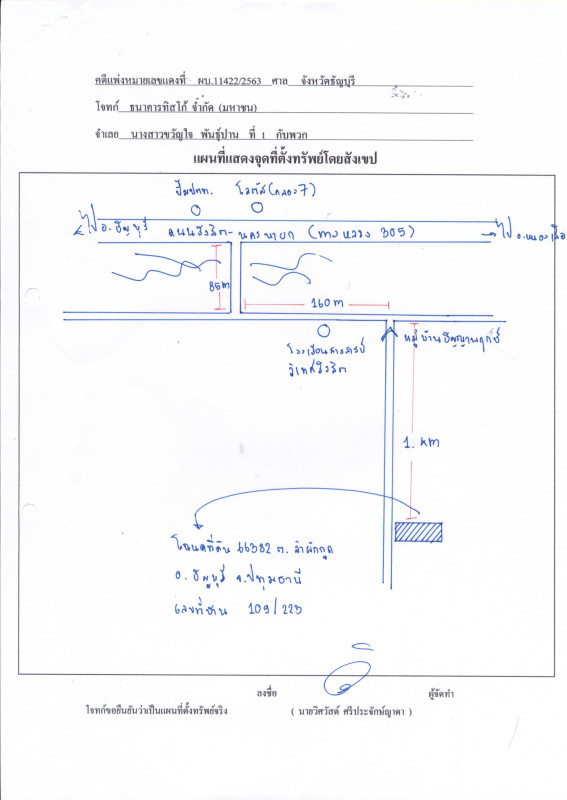 คดีแพ่งหมายเลขแดงที่ ผบ.11422/2563 ศาล จังหวัดธัญบุรี
โจทก์ ธนาคารทิสโก้ จำกัด (มหาชน)
จำเลย นางสาวขวัญใจ พันธุ์ปาน ที่ 1 กับพวก
แผนที่แสดงจุดที่ตั้งทรัพย์โดยสังเขป
ปั๊มปตท. โลตัส(คลอง7)
ไป อ.ธัญบุรี ถนนรังสิต-นครนายก (ทางหลวง 305) ไป อ.หนองเสือ
85m
160 m
โรงเรียนสารสาสน์
วิเทศรังสิต
หมู่บ้านธัญญาพฤกษ์
1. km
โฉนดที่ดิน 66382 ต. ลำผักกูด
อ. ธัญบุรี จ.ปทุมธานี
เลขที่บ้าน 109/223
ลงชื่อ ผู้จัดทำ
โจทก์ขอยืนยันว่าเป็นแผนที่ตั้งทรัพย์จริง ( นายวิศวัสต์ ศรีประจักษ์ญาดา )